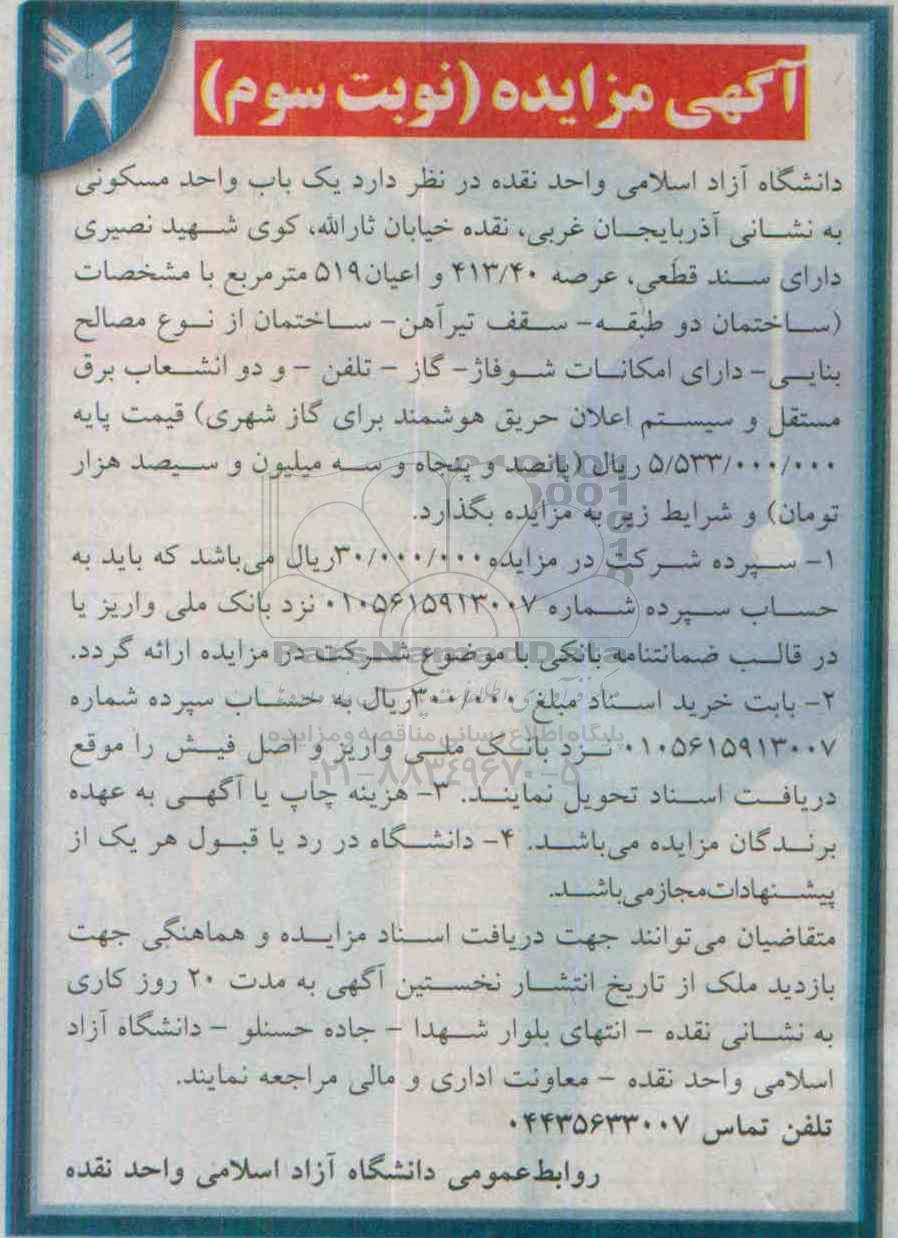 آگهی مزایده (نوبت سوم)
دانشگاه آزاد اسلامی واحد نقده در نظر دارد یک باب واحد مسکونی
به نشانی آذربایجان غربی، نقده خیابان ثارالله، کوی شهید نصیری
دارای سند قطعی، عرصه ۴۱۳/۴۰ و اعیان ۵۱۹ مترمربع با مشخصات
(ساختمان دو طبقه- سقف تیرآهن- ساختمان از نوع مصالح
بنایی- دارای امکانات شوفاژ- گاز - تلفن - و دو انشعاب برق
مستقل و سیستم اعلان حریق هوشمند برای گاز شهری) قیمت پایه
۵/۵۳۳/۰۰۰/۰۰۰ ریال (پانصد و پنجاه و سه میلیون و سیصد هزار
تومان) و شرایط زیر به مزایده بگذارد.
۱- سپرده شرکت در مزایده ۳۰/۰۰۰/۰۰۰ریال می‌باشد که باید به
حساب سپرده شماره ۰۱۰۵۶۱۵۹۱۳۰۰۷ نزد بانک ملی واریز یا
در قالب ضمانتنامه بانکی با موضوع شرکت در مزایده ارائه گردد.
۲- بابت خرید اسناد مبلغ ۳۰۰/۰۰۰ریال به حساب سپرده شماره
۰۱۰۵۶۱۵۹۱۳۰۰۷ نزد بانک ملی واریز و اصل فیش را موقع
دریافت اسناد تحویل نمایند. ۳- هزینه چاپ یا آگهی به عهده
برندگان مزایده می‌باشد. ۴- دانشگاه در رد یا قبول هر یک از
پیشنهادات مجاز می‌باشد.
متقاضیان می‌توانند جهت دریافت اسناد مزایده و هماهنگی جهت
بازدید ملک از تاریخ انتشار نخستین آگهی به مدت ۲۰ روز کاری
به نشانی نقده - انتهای بلوار شهدا - جاده حسنلو - دانشگاه آزاد
اسلامی واحد نقده - معاونت اداری و مالی مراجعه نمایند.
تلفن تماس ۰۴۴۳۵۶۳۳۰۰۷
روابط عمومی دانشگاه آزاد اسلامی واحد نقده
ParsNamadData
پایگاه اطلاع رسانی مناقصه و مزایده
۰۲۱-۸۸۳۴۹۶۷۰-۵